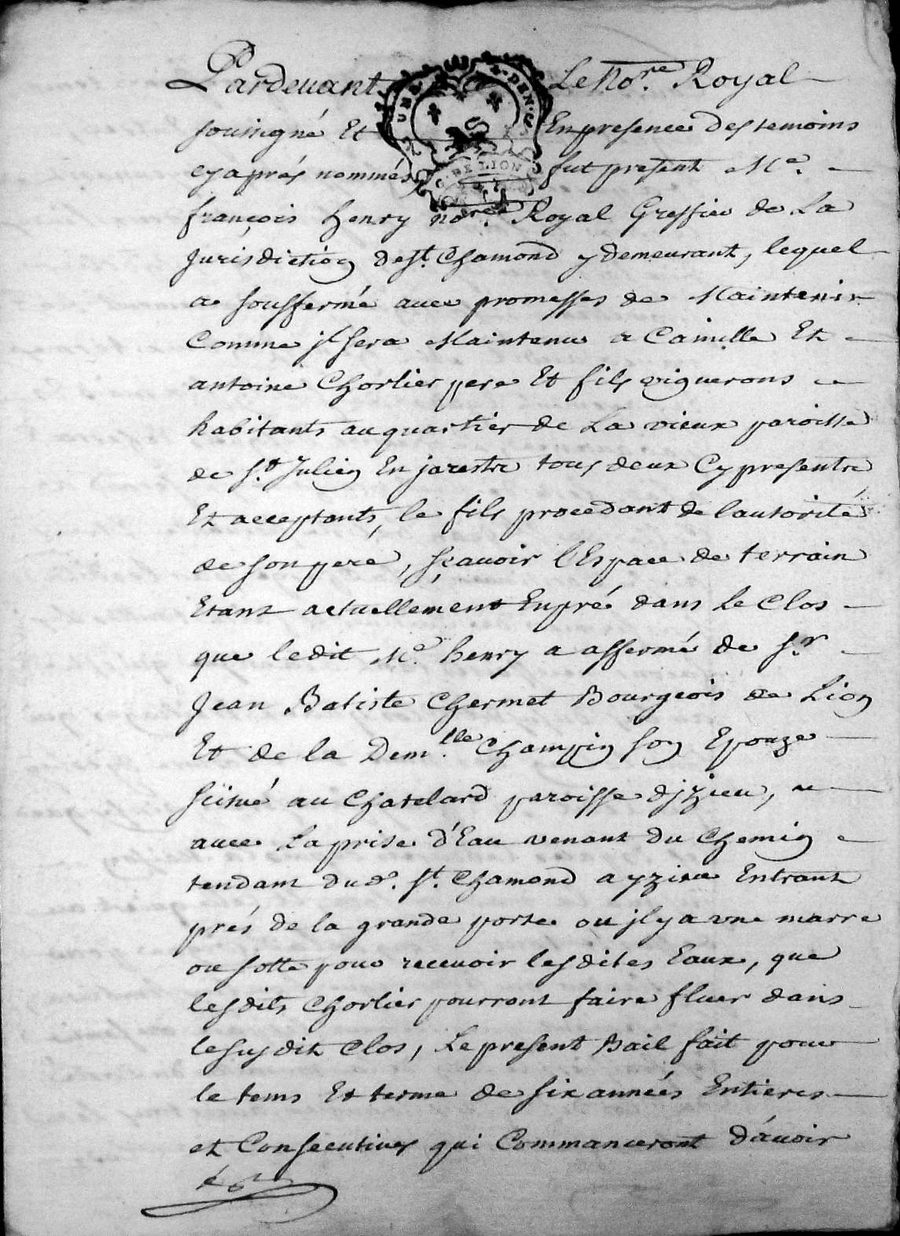 Pardevant Le No.re Royal
souſigné Et En presence des temoins
cy aprés nommés fut present Me.
françois henry no.re Royal Greffier de La
Jurisdiction de St. Chamond y demeurant, lequel
a sousfermé avec promesses de Maintenir
Comme jl sera Maintenu a Camille Et
antoine Chorlier pere Et fils vignerons
habitants au quartier de La vieux paroisse
de St. Julien En jarestz tous deux Cy presentz
Et acceptants, le fils procedant de l'autorité
de son pere, sçavoir l'Espace de terrain
Etant actuellement En pré dans le Clos
que ledit Me. henry a affermé de Sr.
Jean Batiste Chermet Bourgeois de Lion
Et de la Dem.lle Champin son Epouze
scitué au Chatelard paroisse djzieu,
avec La prise d'Eau venant du Chemin
tendant dud. St. Chamond a yzieu Entrant
prés de la grande porte ou jl y a vne marre
ou sotte pour recevoir lesdites Eaux, que
lesdits Chorlier pourront faire fluer dans
lesusdit Clos, Le present Bail fait pour
le tems Et terme de six années Entieres
et Consecutives qui Commanceront d'avoir